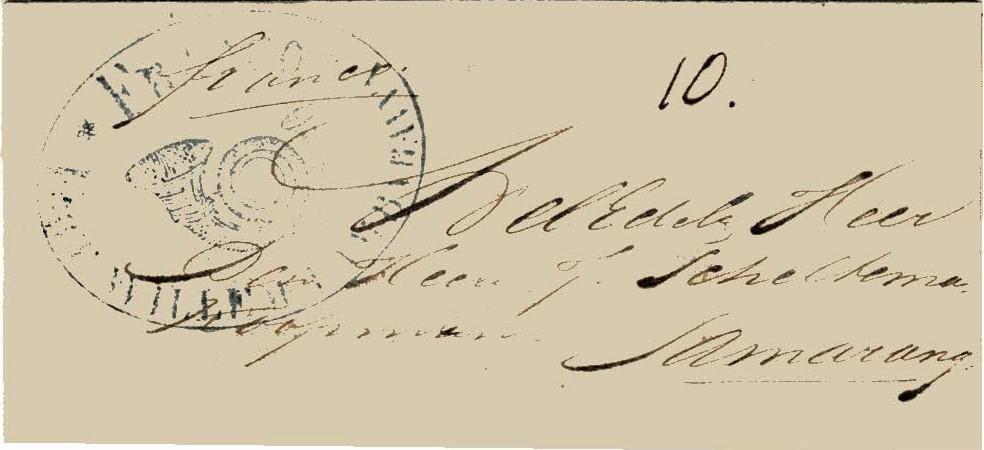 franco.
10.
WelEdele Heer
Den Heer J. Scheltema
Koopman
Samarang.